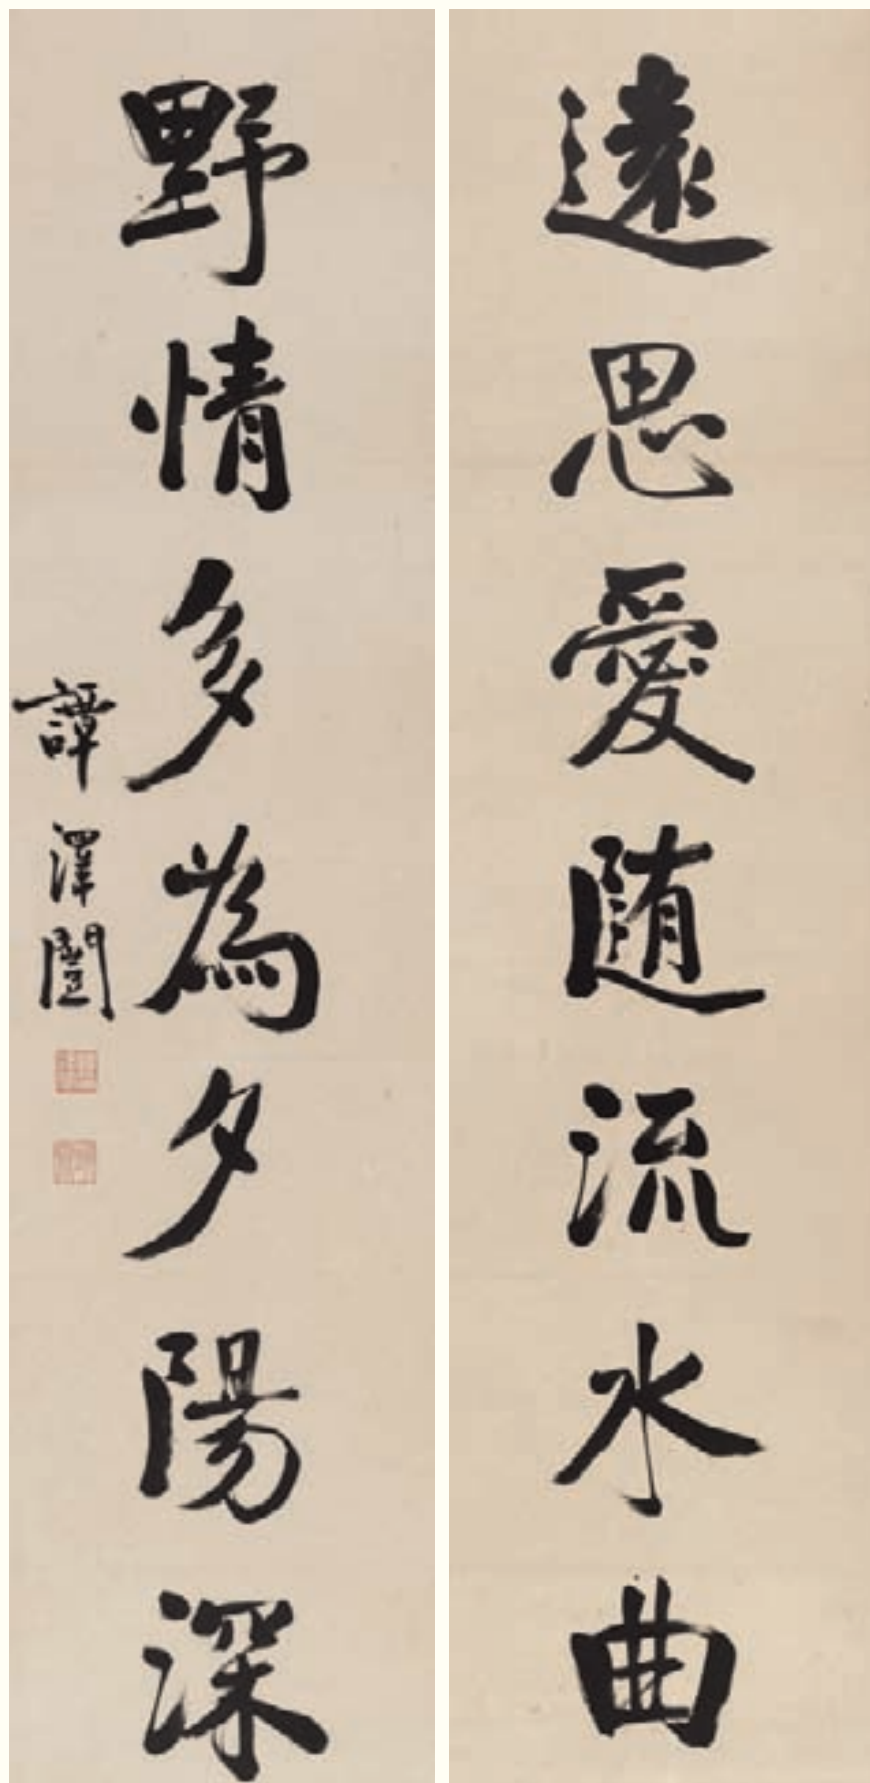 遠思愛随流水曲
野情多為夕陽深
譚澤闓